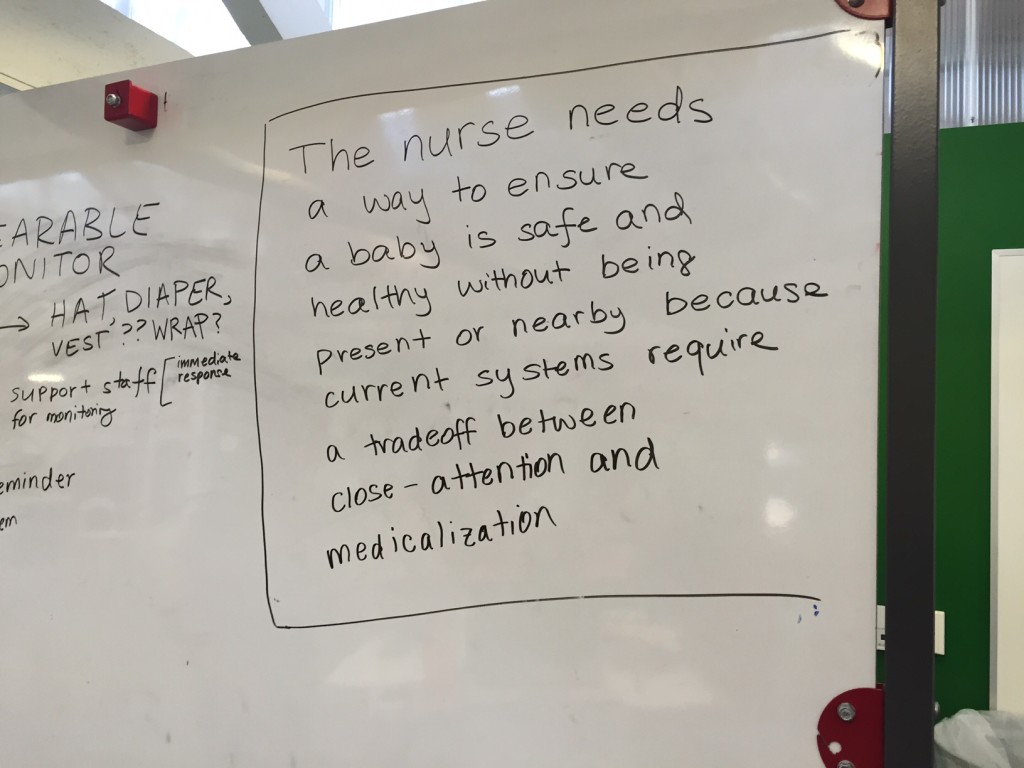 EARABLE
ONITOR
→ HAT, DIAPER,
VEST ?? WRAP?
support staff [immediate response
for monitoring
eminder
em
The nurse needs
a way to ensure
a baby is safe and
healthy without being
present or nearby because
current systems require
a tradeoff between
close-attention and
medicalization